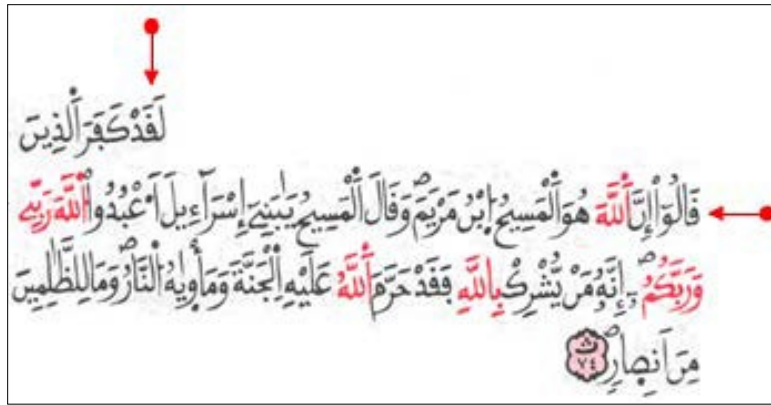 لَقَدْ كَفَرَ اَ۬لذِينَ
قَالُوٓاْ إِنَّ اَ۬للَّهَ هُوَ اَ۬لْمَسِيحُ اُ۪بْنُ مَرْيَمَۖ وَقَالَ اَ۬لْمَسِيحُ يَٰبَنِےٓ إِسْرَآءِيلَ اَ۟عْبُدُواْ اُ۬للَّهَ رَبِّے
وَرَبَّكُمُۥٓۖ إِنَّهُۥ مَنْ يُّشْرِكْ بِاللَّهِ فَقَدْ حَرَّمَ اَ۬للَّهُ عَلَيْهِ اِ۬لْجَنَّةَ وَمَأْو۪يٰهُ اُ۬لنَّارُۖ وَمَا لِلظَّٰلِمِينَ
مِنَ اَنصِارٖ ٧٤